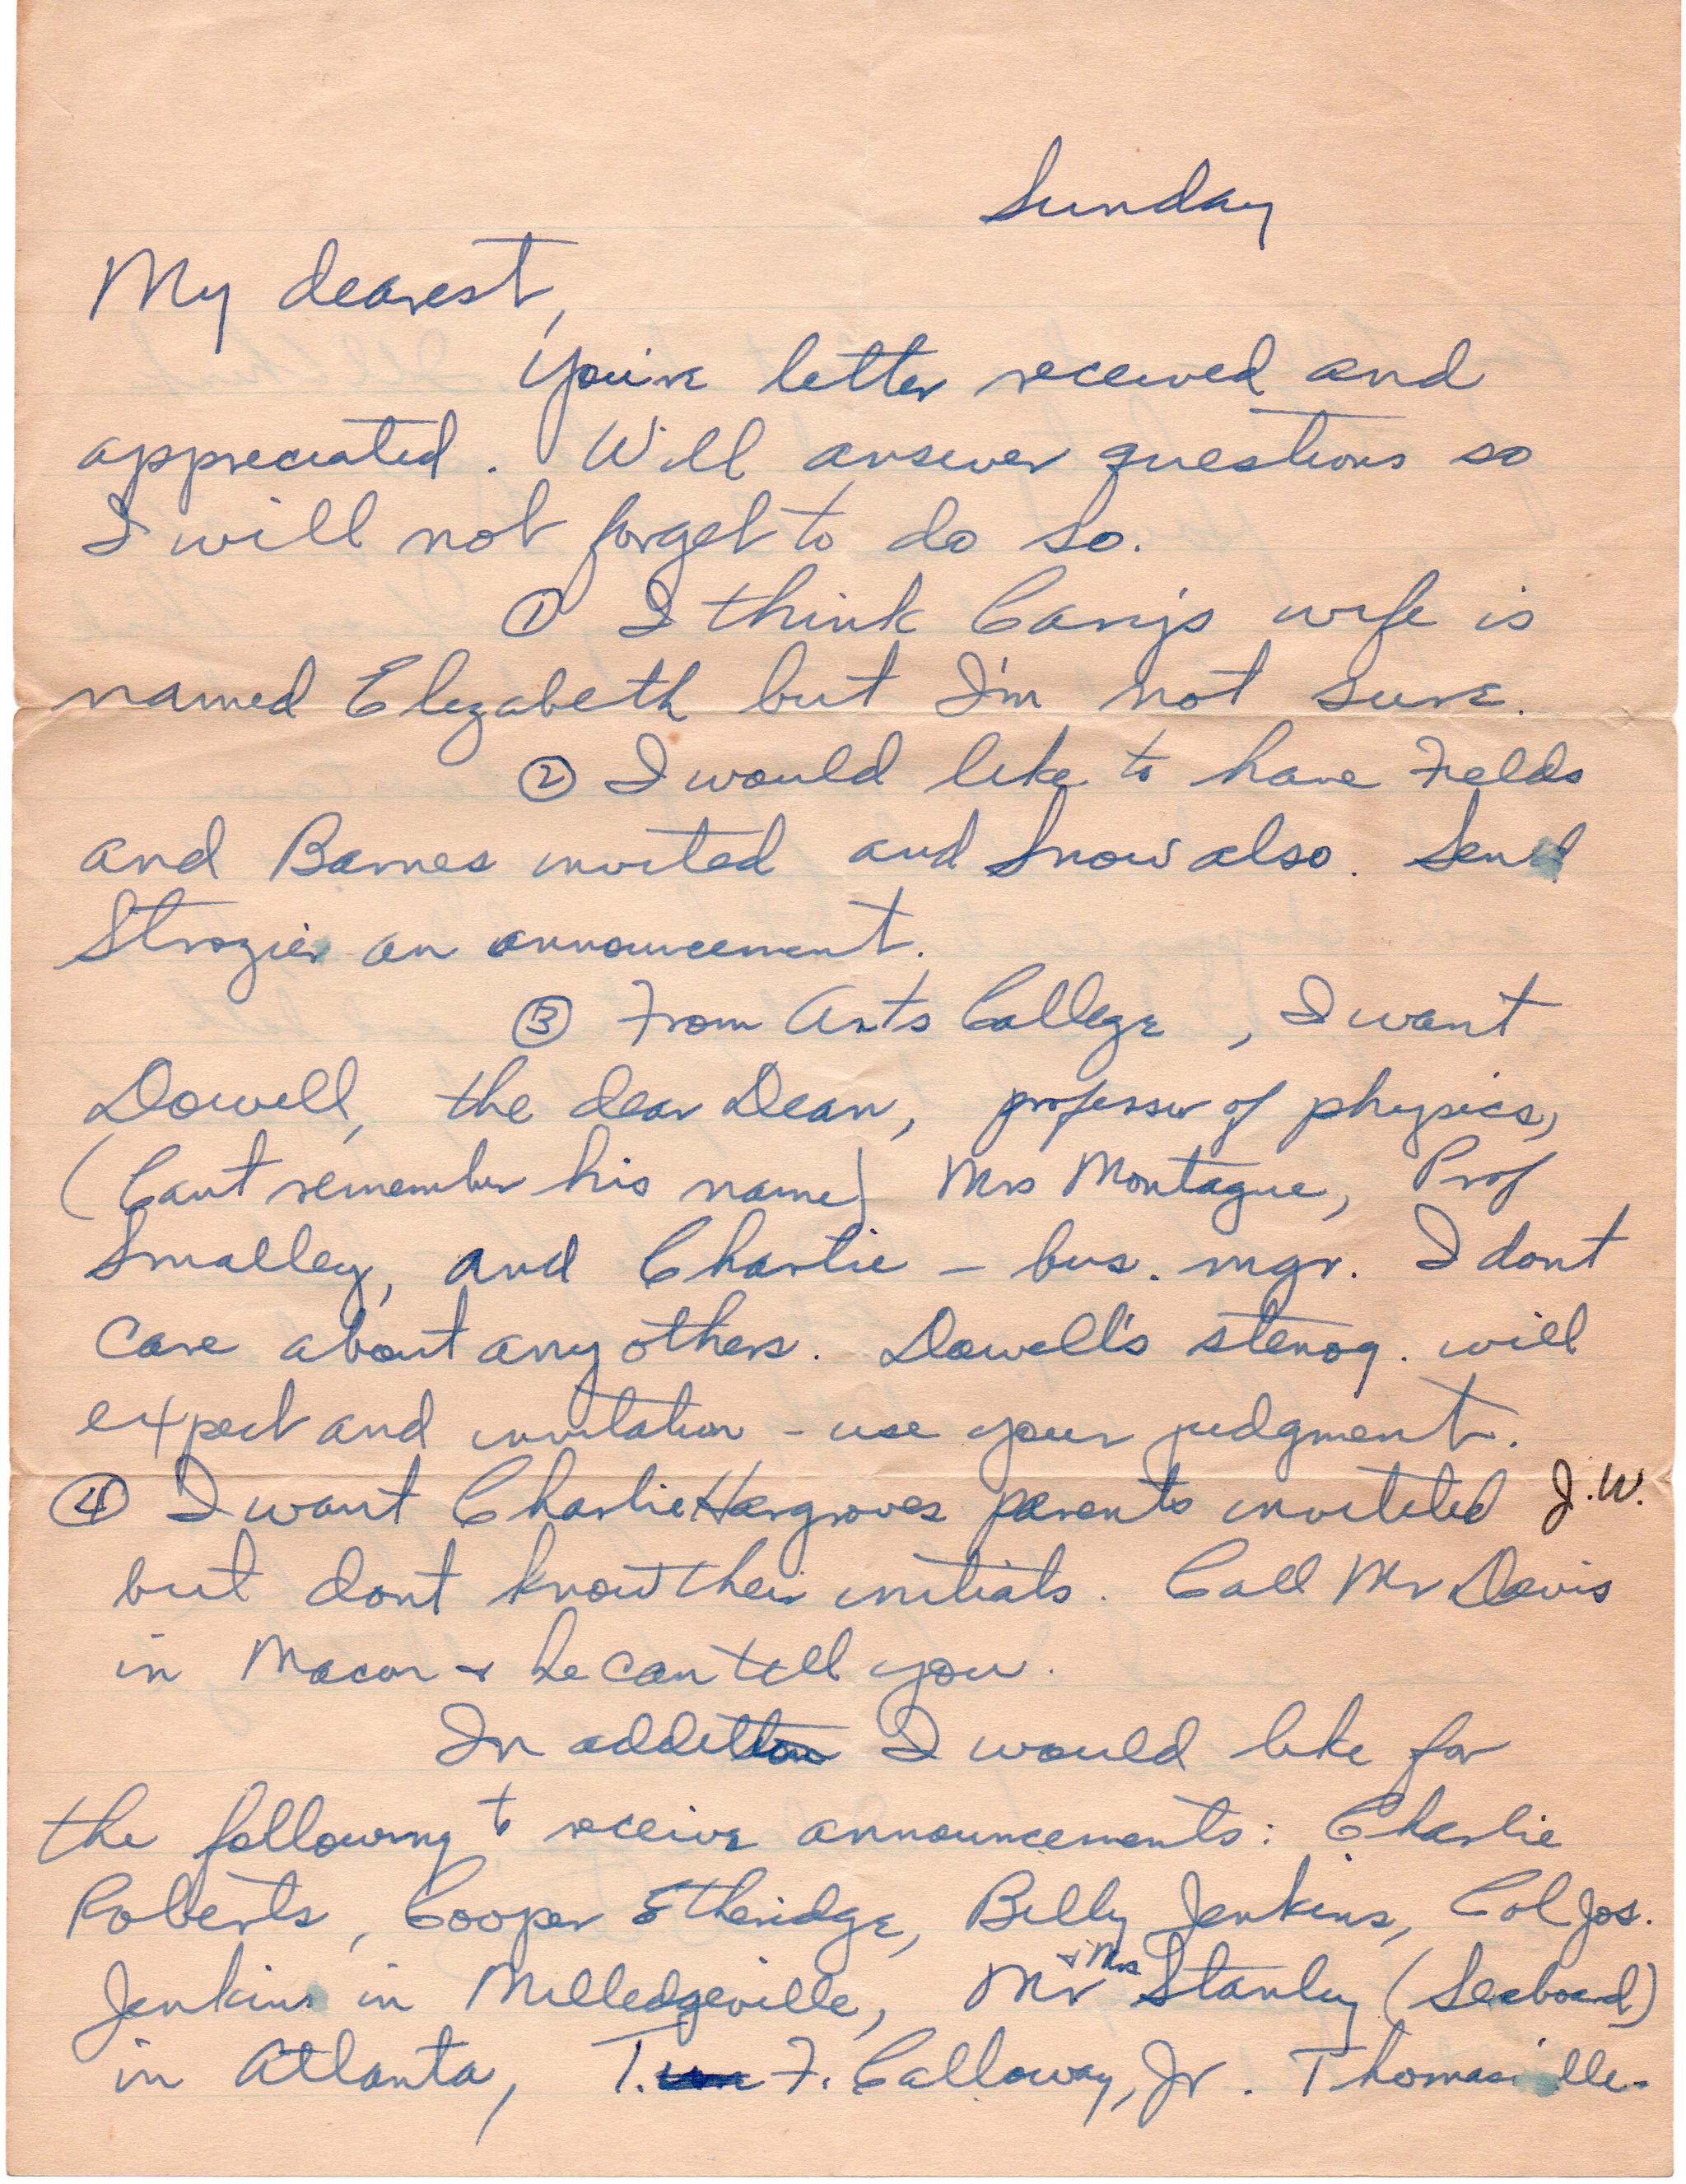 Sunday
My dearest,
Your letter received and
appreciated. Will answer questions so
I will not forget to do so.
① I think Cary's wife is
named Elizabeth but I'm not sure.
② I would like to have Fields
and Barnes invited and Snow also. Send
Strozier an announcement.
③ From Arts College, I want
Dowell, the dear Dean, professor of physics,
(Cant remember his name) Mrs Montague, Prof
Smalley, and Charlie – bus. mgr. I dont
care about any others. Dowell's stenog. will
expect and invitation – use your judgment.
④ I want Charlie Hargroves parents invitited J.W.
but dont know their initials. Call Mr Davis
in Macon & he can tell you.
In addition I would like for
the following to receive announcements: Charlie
Roberts, Cooper Etheridge, Billy Jenkins, Col Jos.
Jenkins in Milledgeville, Mr & Mrs Stanley (Seaboard)
in Atlanta, T. F. Calloway, Jr. Thomasville-